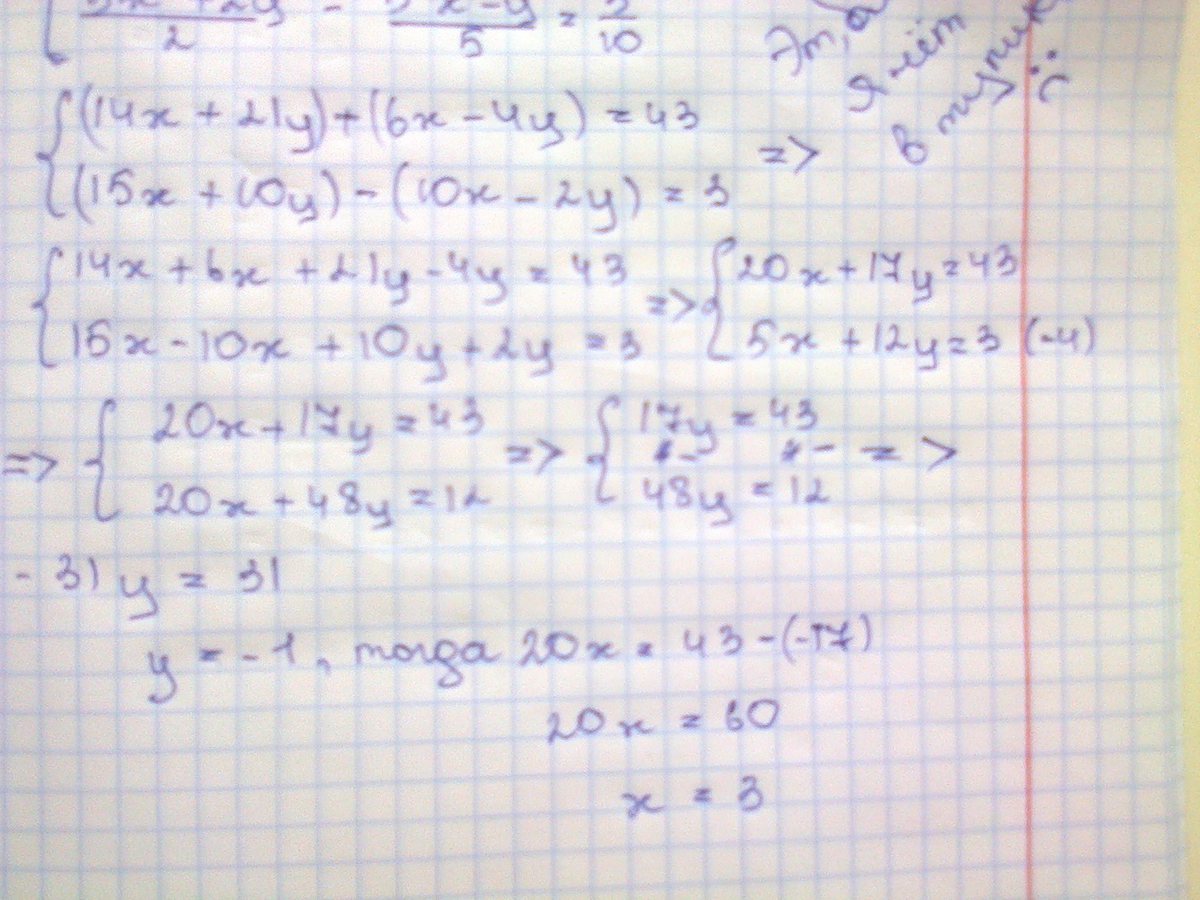 2 - 5 = 10
{ (14x + 21y) + (6x - 4y) = 43
(15x + 10y) - (10x - 2y) = 3 =>
{ 14x + 6x + 21y - 4y = 43
15x - 10x + 10y + 2y = 3
=> { 20x + 17y = 43
5x + 12y = 3 (-4)
=> { 20x + 17y = 43
20x + 48y = 12
=> { 17y = 43
48y = 12 =>
- 31y = 31
y = -1, тогда 20x = 43 - (-17)
20x = 60
x = 3
в
:(